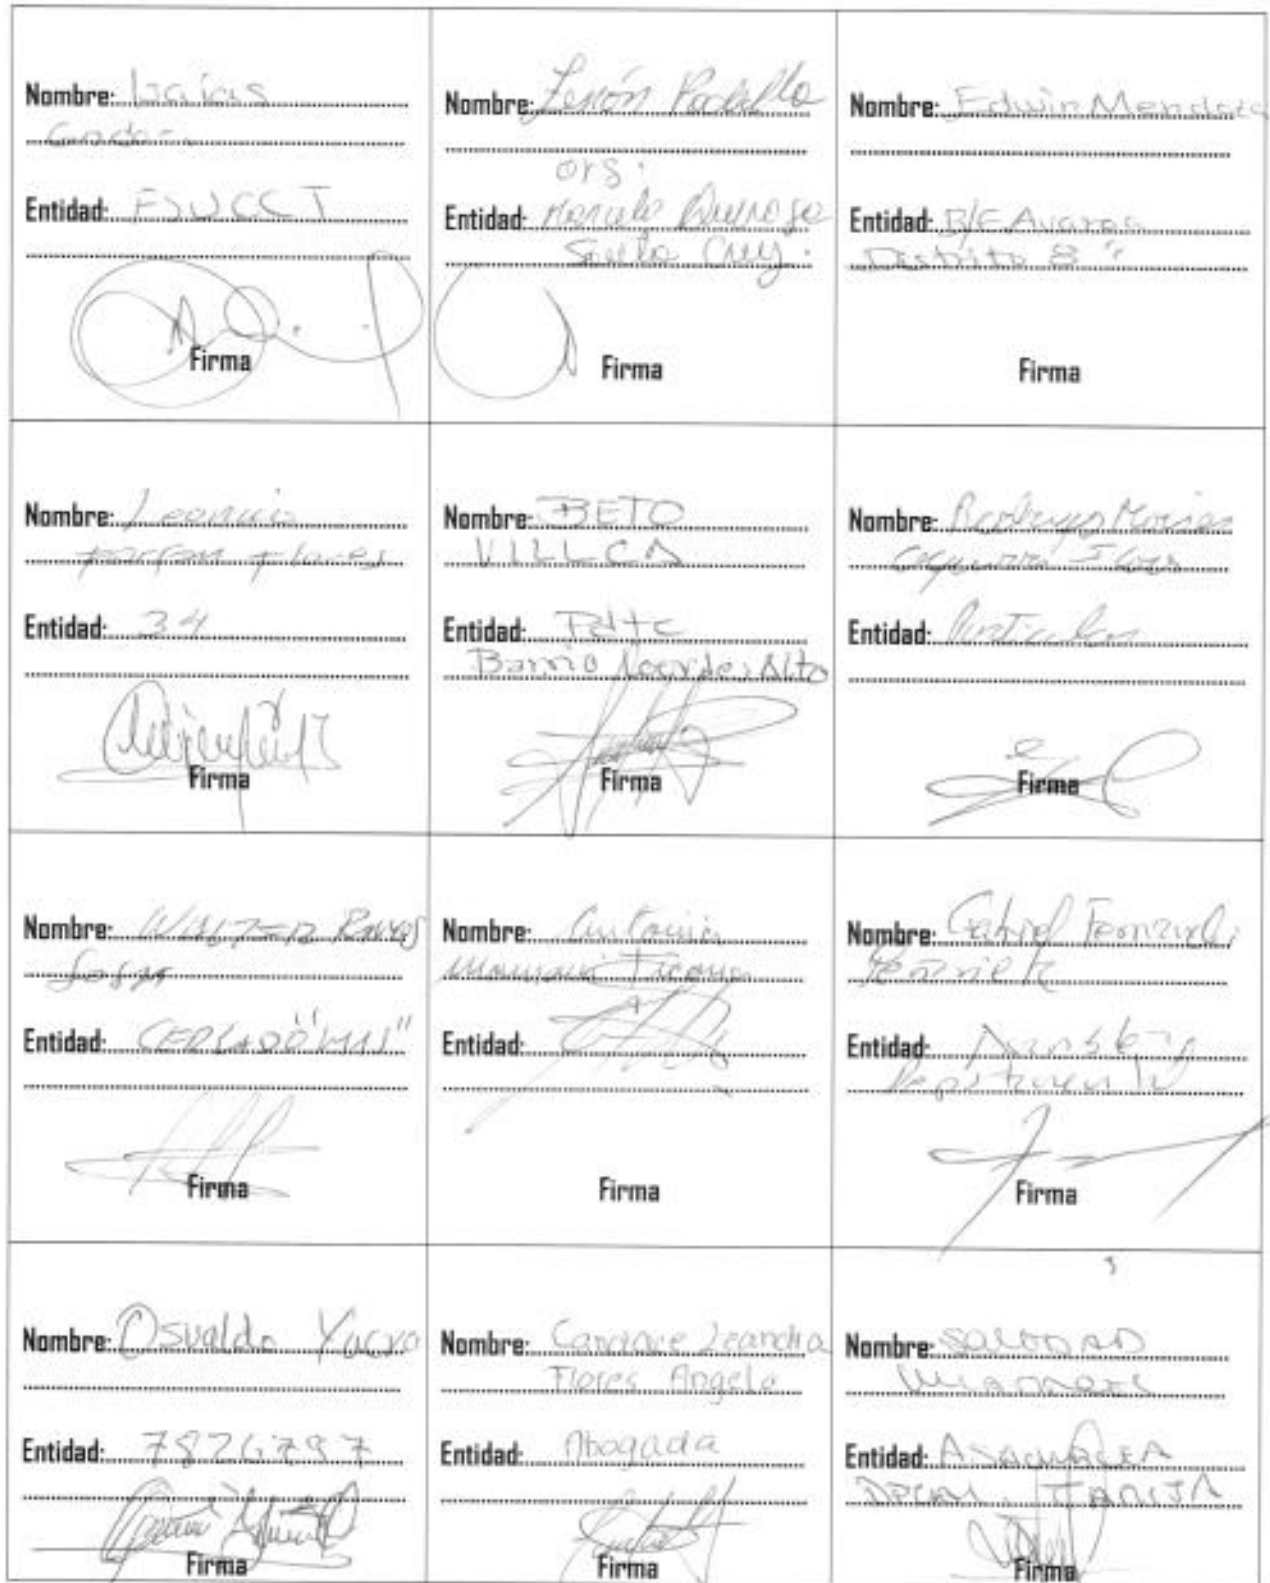 Nombre: Isaias
Entidad: FSUCCT
Firma
Nombre: Zenón Padilla
org.
Entidad: Marcelo Quiroga
Santa Cruz.
Firma
Nombre: Edwin Mendoza
Entidad: B/E. Avaroa
Distrito 8
Firma
Nombre: Leoncio
Farfan Flores
Entidad: 34
Firma
Nombre: BETO
VILLCA
Entidad: Pdte
Barrio Lourdes Alto
Firma
Nombre: Rodrigo Moises
Entidad: Particular
Firma
Nombre: WALTER
Sosa
Entidad: CERCADO "MAS"
Firma
Nombre: Antonia
Mamani
Entidad:
Firma
Nombre: Gabriel
Entidad: Asamblea
Departamental
Firma
Nombre: Osvaldo Yucra
Entidad: 7826797
Firma
Nombre: Leandra
Flores Angela
Entidad: Abogada
Firma
Nombre: SOLEDAD
Entidad: ASAMBLEA
DPTAL. TARIJA
Firma